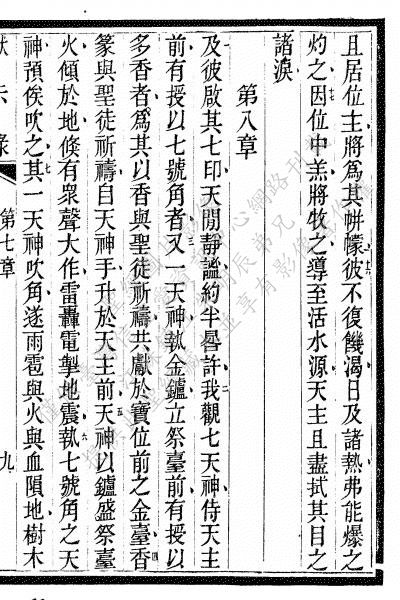 且居位主將爲其帡幪彼不復饑渴日及諸熱弗能爆之
灼之因位中羔將牧之導至活水源天主且盡拭其目之
諸淚
第八章
及彼啟其七印天閒靜謐約半晷許我觀七天神侍天主
前有授以七號角者又一天神執金鑪立祭臺前有授以
多香者爲其以香與聖徒祈禱共獻於寶位前之金臺香
篆與聖徒祈禱自天神手升於天主前天神以鑪盛祭臺
火傾於地倏有衆聲大作雷轟電掣地震執七號角之天
神預俟吹之其一天神吹角遂雨雹與火與血隕地樹木
示錄 第七章 九